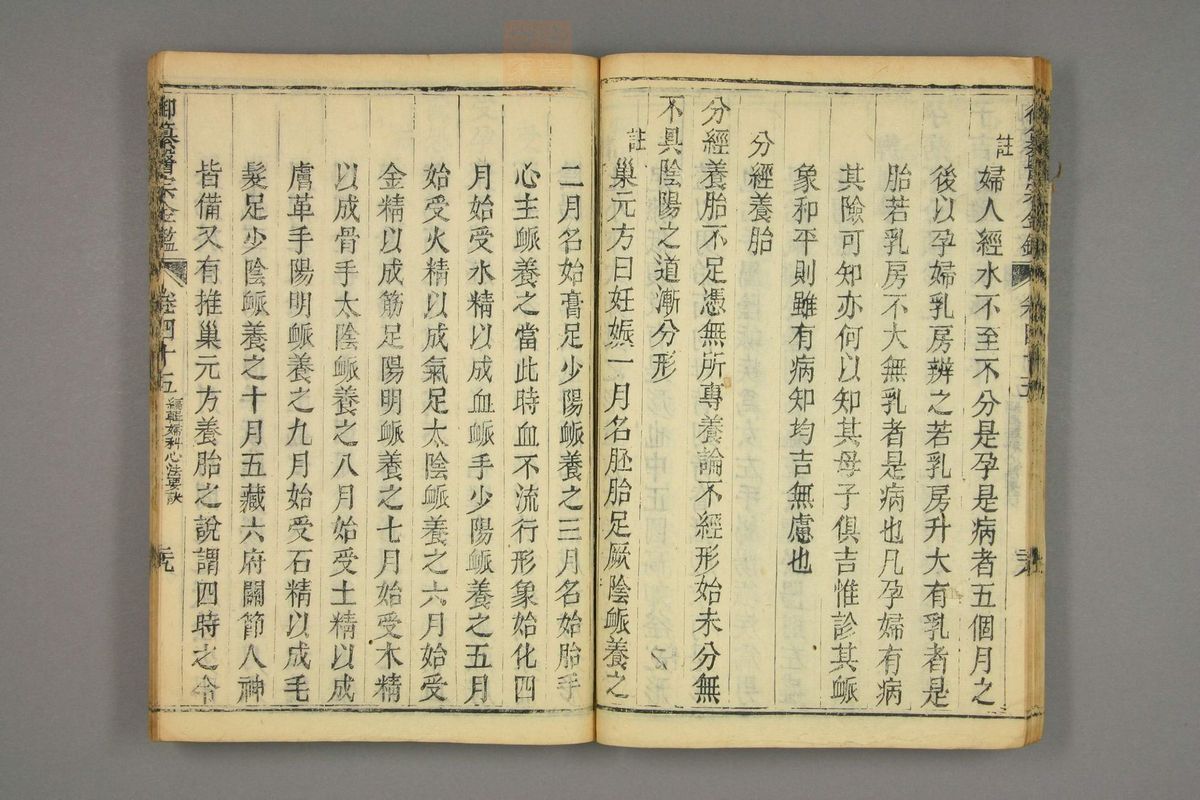 註
婦人經水不至不分是孕是病者五個月之
後以孕婦乳房辨之若乳房升大有乳者是
胎若乳房不大無乳者是病也凡孕婦有病
其險可知亦何以知其母子俱吉惟診其衇
象和平則雖有病知均吉無慮也
分經養胎
分經養胎不足憑無所專養論不經形始未分無
不具陰陽之道漸分形
註
巢元方曰妊娠一月名胚胎足厥陰衇養之
二月名始膏足少陽衇養之三月名始胎手
心主衇養之當此時血不流行形象始化四
月始受水精以成血衇手少陽衇養之五月
始受火精以成氣足太陰衇養之六月始受
金精以成筋足陽明衇養之七月始受木精
以成骨手太陰衇養之八月始受土精以成
膚革手陽明衇養之九月始受石精以成毛
髮足少陰衇養之十月五藏六府關節人神
皆備又有推巢元方養胎之說謂四時之令
御纂醫宗金鑑
卷四十五
編輯婦科心法要訣